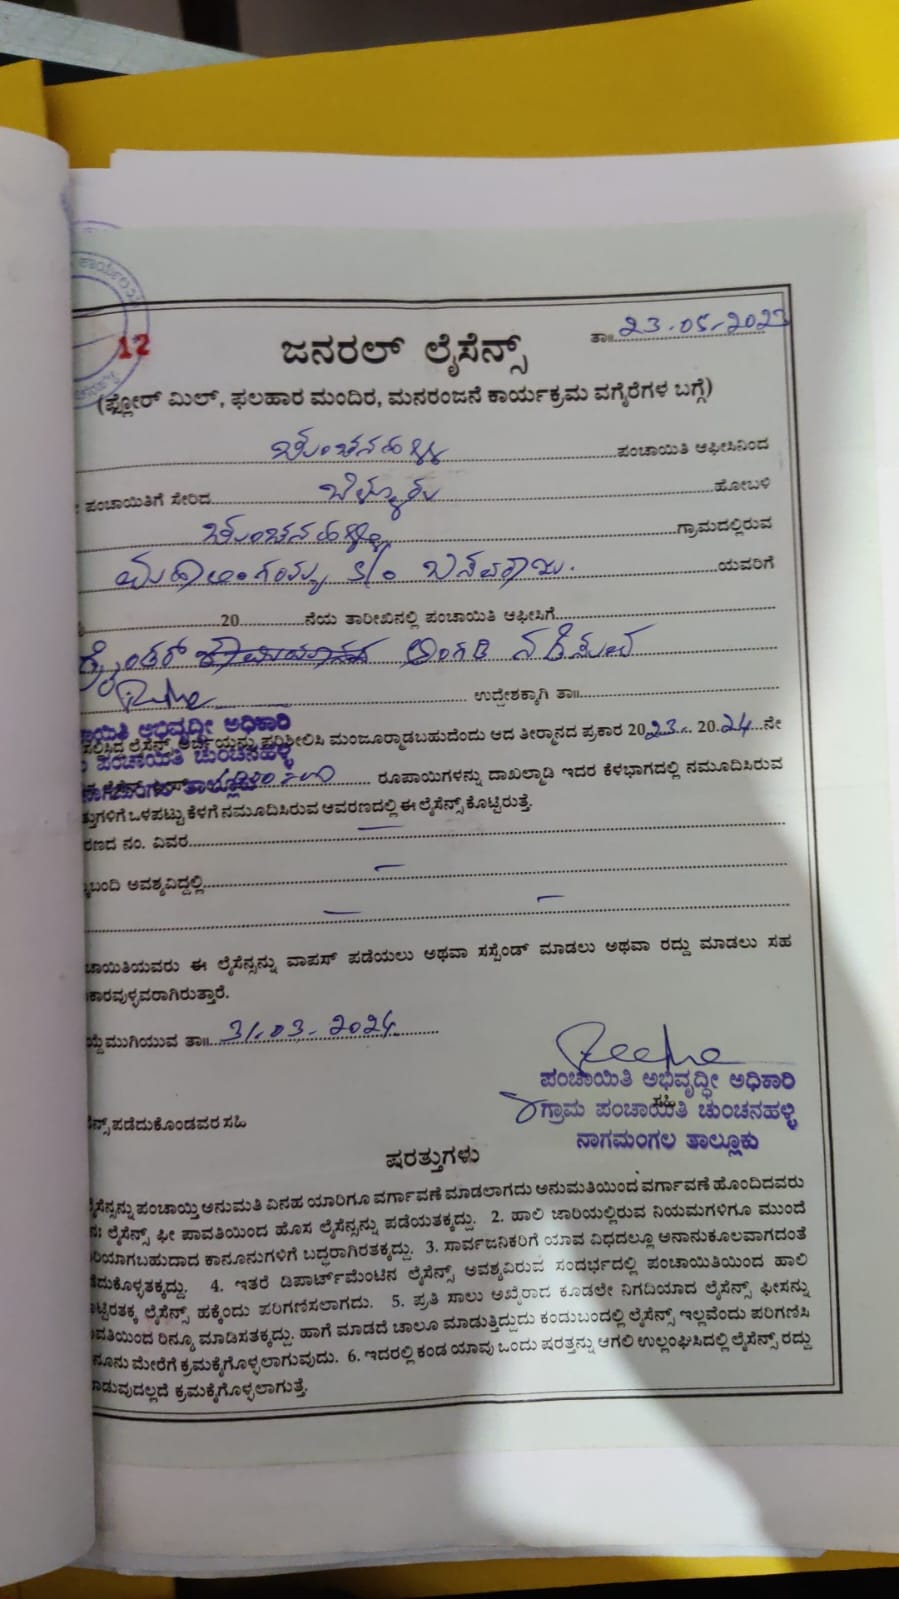 ಕಾರ್ಯಾಲಯ
12
ತಾ॥ 23-05-2023
ಜನರಲ್ ಲೈಸೆನ್ಸ್
(ಫ್ಲೋರ್ ಮಿಲ್, ಫಲಹಾರ ಮಂದಿರ, ಮನರಂಜನೆ ಕಾರ್ಯಕ್ರಮ ವಗೈರೆಗಳ ಬಗ್ಗೆ)
ಚುಂಚನಹಳ್ಳಿ ಪಂಚಾಯಿತಿ ಆಫೀಸಿನಿಂದ
ಪಂಚಾಯಿತಿಗೆ ಸೇರಿದ ಬೆಳ್ಳೂರು ಹೋಬಳಿ
ಚುಂಚನಹಳ್ಳಿ ಗ್ರಾಮದಲ್ಲಿರುವ
ಮಹಾಲಿಂಗಯ್ಯ S/o ಬಸವರಾಜು. ಯವರಿಗೆ
20 ನೆಯ ತಾರೀಖಿನಲ್ಲಿ ಪಂಚಾಯಿತಿ ಆಫೀಸಿಗೆ
ಅಂಗಡಿ ನಡೆಸುವ
ಉದ್ದೇಶಕ್ಕಾಗಿ ತಾ॥
ಾಯಿತಿ ಅಭಿವೃದ್ಧೀ ಅಧಿಕಾರಿ
ಲೈಸೆನ್ಸ್ ಅರ್ಜಿಯನ್ನು ಪರಿಶೀಲಿಸಿ ಮಂಜೂರ್ಮಾಡಬಹುದೆಂದು ಆದ ತೀರ್ಮಾನದ ಪ್ರಕಾರ 2023 20.24 ನೇ
ಪಂಚಾಯಿತಿ ಚುಂಚನಹಳ್ಳಿ
ರೂಪಾಯಿಗಳನ್ನು ದಾಖಲ್ಮಾಡಿ ಇದರ ಕೆಳಭಾಗದಲ್ಲಿ ನಮೂದಿಸಿರುವ
ನಾಗಮಂಗಲ ತಾಲ್ಲೂಕು
ತ್ತುಗಳಿಗೆ ಒಳಪಟ್ಟು ಕೆಳಗೆ ನಮೂದಿಸಿರುವ ಆವರಣದಲ್ಲಿ ಈ ಲೈಸೆನ್ಸ್ ಕೊಟ್ಟಿರುತ್ತೆ.
ರಣದ ನಂ. ವಿವರ —
ಬಂದಿ ಅವಶ್ಯವಿದ್ದಲ್ಲಿ —
— —
ಚಾಯಿತಿಯವರು ಈ ಲೈಸೆನ್ಸನ್ನು ವಾಪಸ್ ಪಡೆಯಲು ಅಥವಾ ಸಸ್ಪೆಂಡ್ ಮಾಡಲು ಅಥವಾ ರದ್ದು ಮಾಡಲು ಸಹ
ಕಾರವುಳ್ಳವರಾಗಿರುತ್ತಾರೆ.
ಮುಗಿಯುವ ತಾ॥ 31-03-2024
ಪಂಚಾಯಿತಿ ಅಭಿವೃದ್ಧೀ ಅಧಿಕಾರಿ
ಸಹಿ
ಗ್ರಾಮ ಪಂಚಾಯಿತಿ ಚುಂಚನಹಳ್ಳಿ
ನಾಗಮಂಗಲ ತಾಲ್ಲೂಕು
ನ್ಸ್ ಪಡೆದುಕೊಂಡವರ ಸಹಿ
ಷರತ್ತುಗಳು
ಸೆನ್ಸನ್ನು ಪಂಚಾಯ್ತಿ ಅನುಮತಿ ವಿನಹ ಯಾರಿಗೂ ವರ್ಗಾವಣೆ ಮಾಡಲಾಗದು ಅನುಮತಿಯಿಂದ ವರ್ಗಾವಣೆ ಹೊಂದಿದವರು
ನಃ ಲೈಸೆನ್ಸ್ ಫೀ ಪಾವತಿಯಿಂದ ಹೊಸ ಲೈಸೆನ್ಸನ್ನು ಪಡೆಯತಕ್ಕದ್ದು. 2. ಹಾಲಿ ಜಾರಿಯಲ್ಲಿರುವ ನಿಯಮಗಳಿಗೂ ಮುಂದೆ
ರಿಯಾಗಬಹುದಾದ ಕಾನೂನುಗಳಿಗೆ ಬದ್ಧರಾಗಿರತಕ್ಕದ್ದು. 3. ಸಾರ್ವಜನಿಕರಿಗೆ ಯಾವ ವಿಧದಲ್ಲೂ ಅನಾನುಕೂಲವಾಗದಂತೆ
ಡೆದುಕೊಳ್ಳತಕ್ಕದ್ದು. 4. ಇತರೆ ಡಿಪಾರ್ಟ್‌ಮೆಂಟಿನ ಲೈಸೆನ್ಸ್ ಅವಶ್ಯವಿರುವ ಸಂದರ್ಭದಲ್ಲಿ ಪಂಚಾಯಿತಿಯಿಂದ ಹಾಲಿ
ಟ್ಟಿರತಕ್ಕ ಲೈಸೆನ್ಸ್ ಹಕ್ಕೆಂದು ಪರಿಗಣಿಸಲಾಗದು. 5. ಪ್ರತಿ ಸಾಲು ಅಖೈರಾದ ಕೂಡಲೇ ನಿಗದಿಯಾದ ಲೈಸೆನ್ಸ್ ಫೀಸನ್ನು
ವತಿಯಿಂದ ರಿನ್ಯೂ ಮಾಡಿಸತಕ್ಕದ್ದು. ಹಾಗೆ ಮಾಡದೆ ಚಾಲೂ ಮಾಡುತ್ತಿದ್ದುದು ಕಂದುಬಂದಲ್ಲಿ ಲೈಸೆನ್ಸ್ ಇಲ್ಲವೆಂದು ಪರಿಗಣಿಸಿ
ನೂನು ಮೇರೆಗೆ ಕ್ರಮಕೈಗೊಳ್ಳಲಾಗುವುದು. 6. ಇದರಲ್ಲಿ ಕಂಡ ಯಾವು ಒಂದು ಷರತ್ತನ್ನು ಆಗಲಿ ಉಲ್ಲಂಘಿಸಿದಲ್ಲಿ ಲೈಸೆನ್ಸ್ ರದ್ದು
ಾಡುವುದಲ್ಲದೆ ಕ್ರಮಕೈಗೊಳ್ಳಲಾಗುತ್ತೆ.